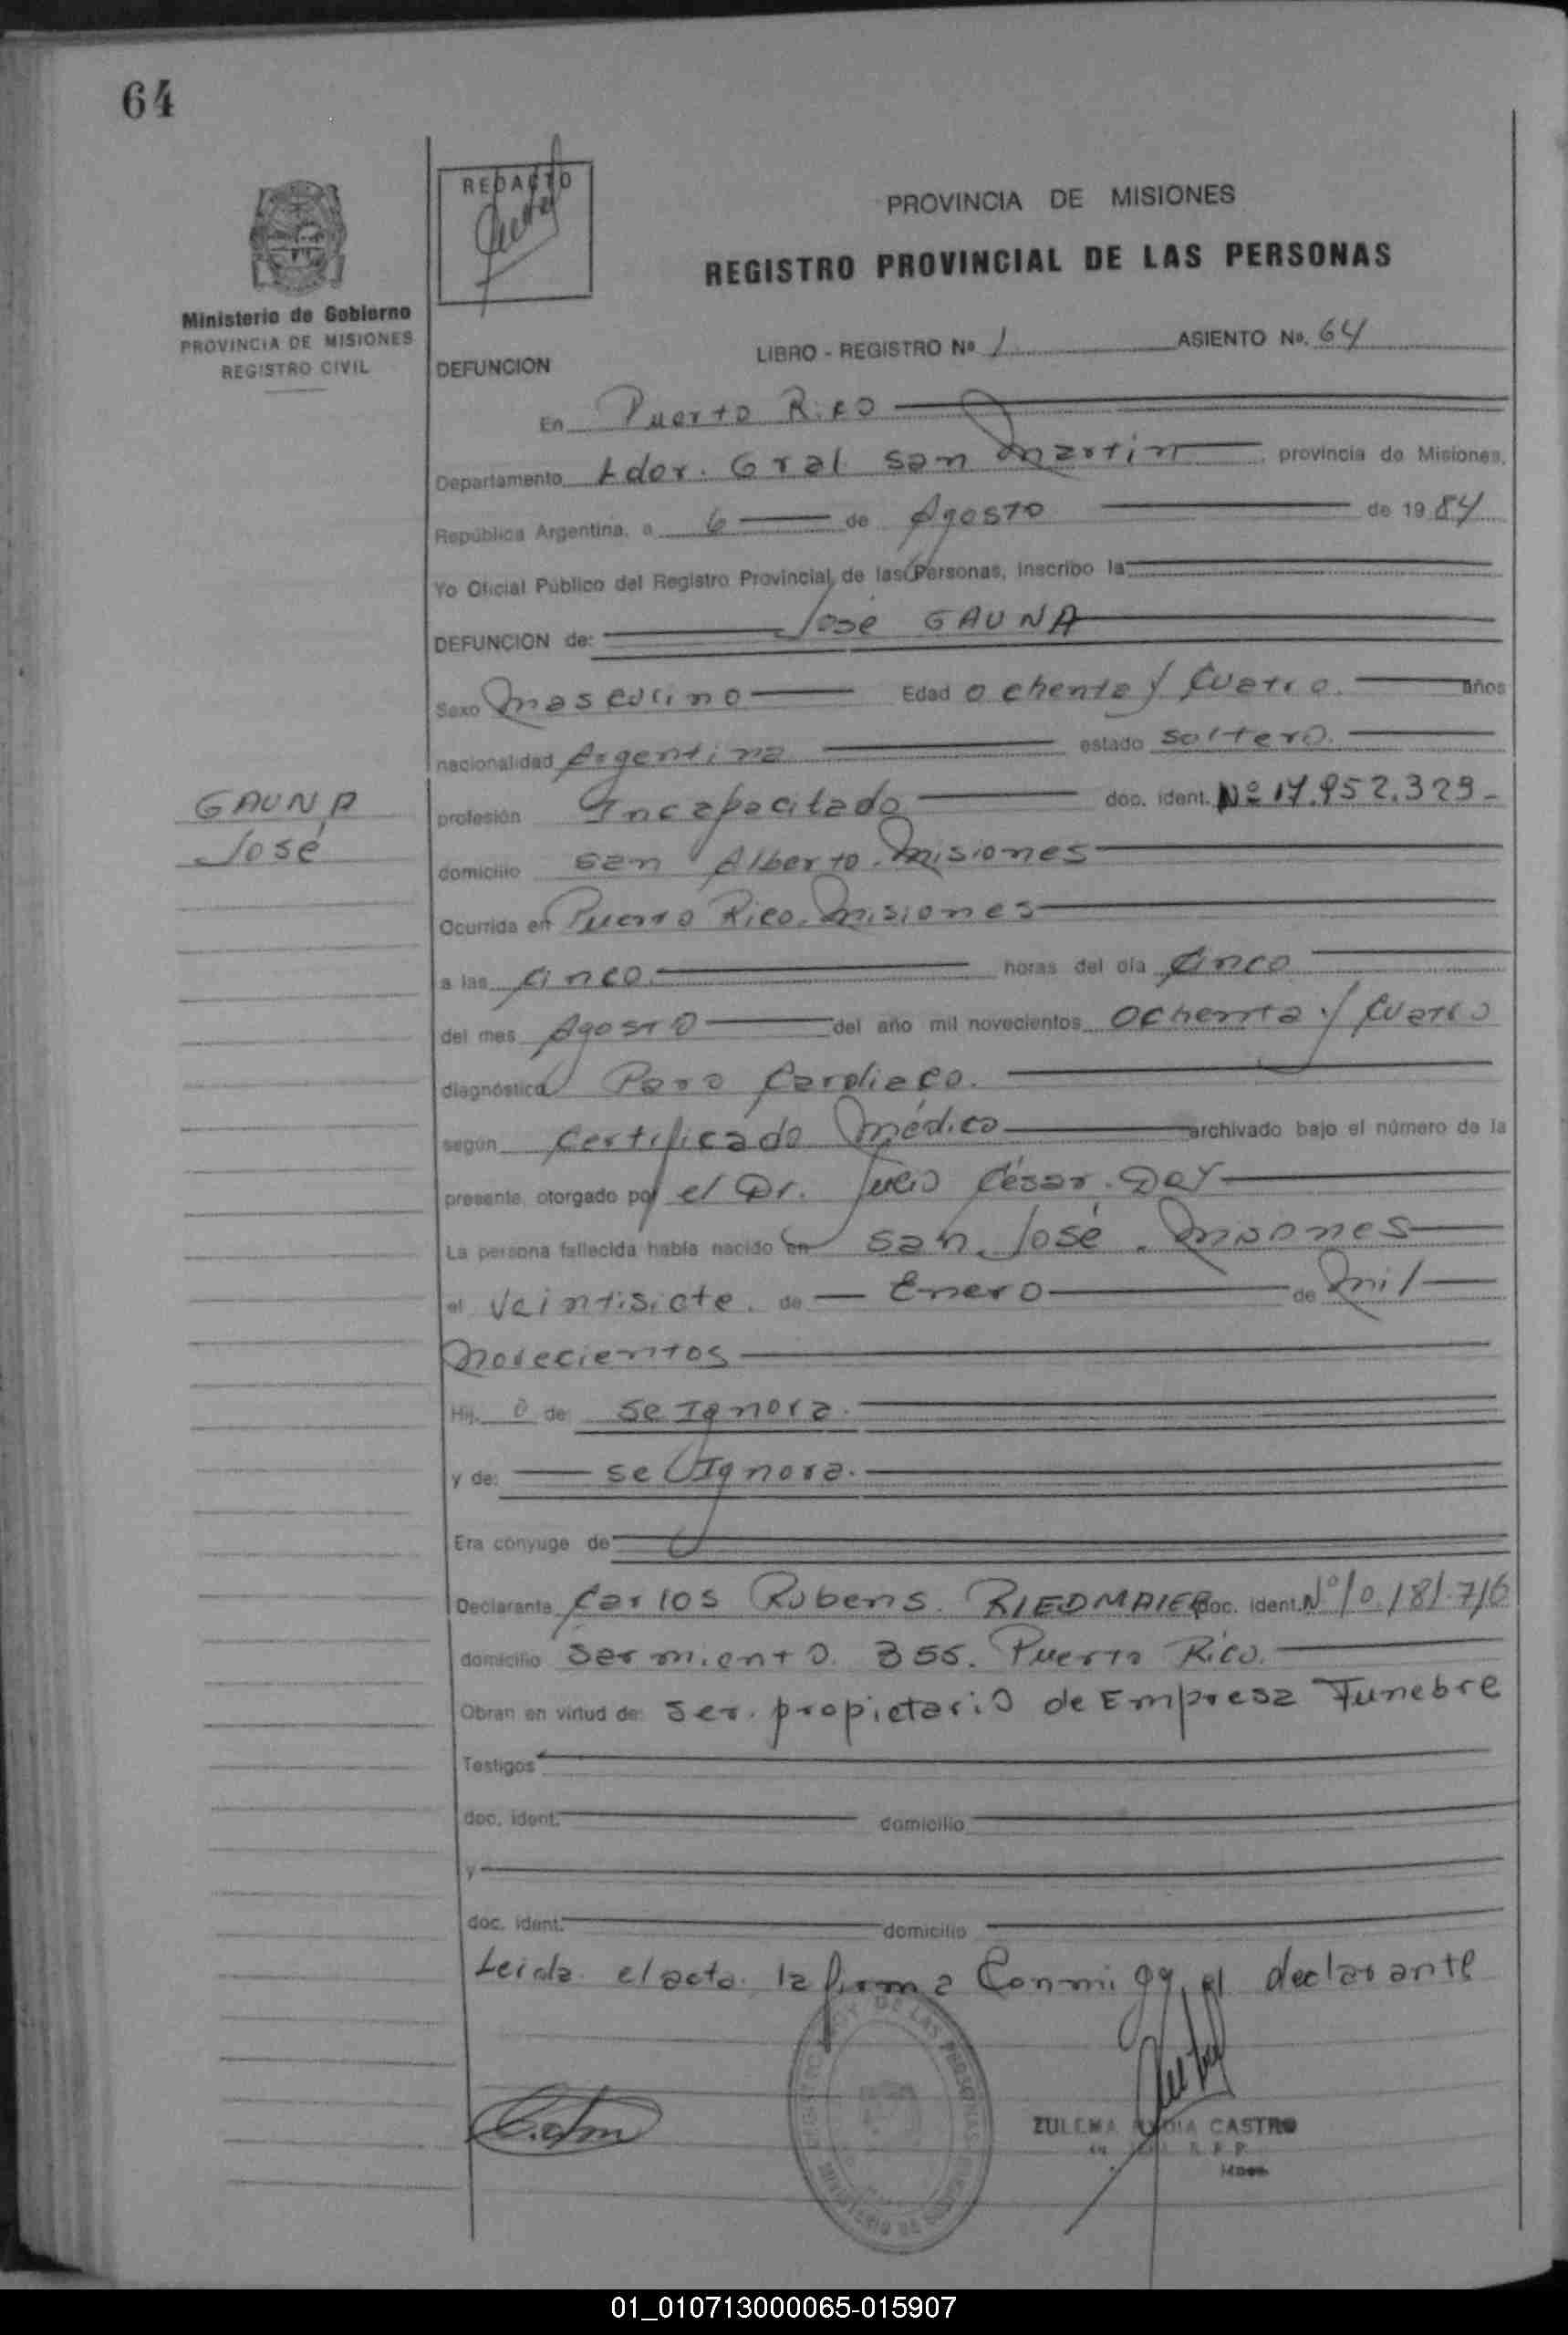 64
REDACTO
PROVINCIA DE MISIONES
REGISTRO PROVINCIAL DE LAS PERSONAS
Ministerio de Gobierno
PROVINCIA DE MISIONES
REGISTRO CIVIL
LIBRO - REGISTRO Nº 1 ASIENTO No. 64
DEFUNCION
En Puerto Rico
Departamento Ldor. Gral San Martin provincia de Misiones,
República Argentina, a 6 de Agosto de 1984
Yo Oficial Público del Registro Provincial de las Personas, inscribo la
DEFUNCION de: José GAUNA
Sexo Masculino Edad Ochenta y Cuatro. años
nacionalidad Argentina estado soltero.
GAUNA
José
profesión Incapacitado doc. ident. Nº 17.952.329-
domicilio San Alberto. Misiones
Ocurrida en Puerto Rico. Misiones
a las cinco. horas del día cinco
del mes Agosto del año mil novecientos Ochenta y Cuatro
diagnóstico Paro Cardiaco.
según Certificado Médico archivado bajo el número de la
presente, otorgado por el Dr. Julio César. Day
La persona fallecida había nacido en San José. Misiones
el Veintisiete. de Enero de Mil
Novecientos
Hij o de Se Ignora.
y de: se Ignora.
Era cónyuge de
Declarante Carlos Rubens. RIEDMAIER doc. ident. Nº 10.181.716
domicilio Sarmiento. 355. Puerto Rico.
Obran en virtud de: Ser. propietario de Empresa Funebre
Testigos
doc. ident. domicilio
y
doc. ident. domicilio
Leida el acta. la firma Conmigo, el declarante
ZULEMA CASTRO
01_010713000065-015907